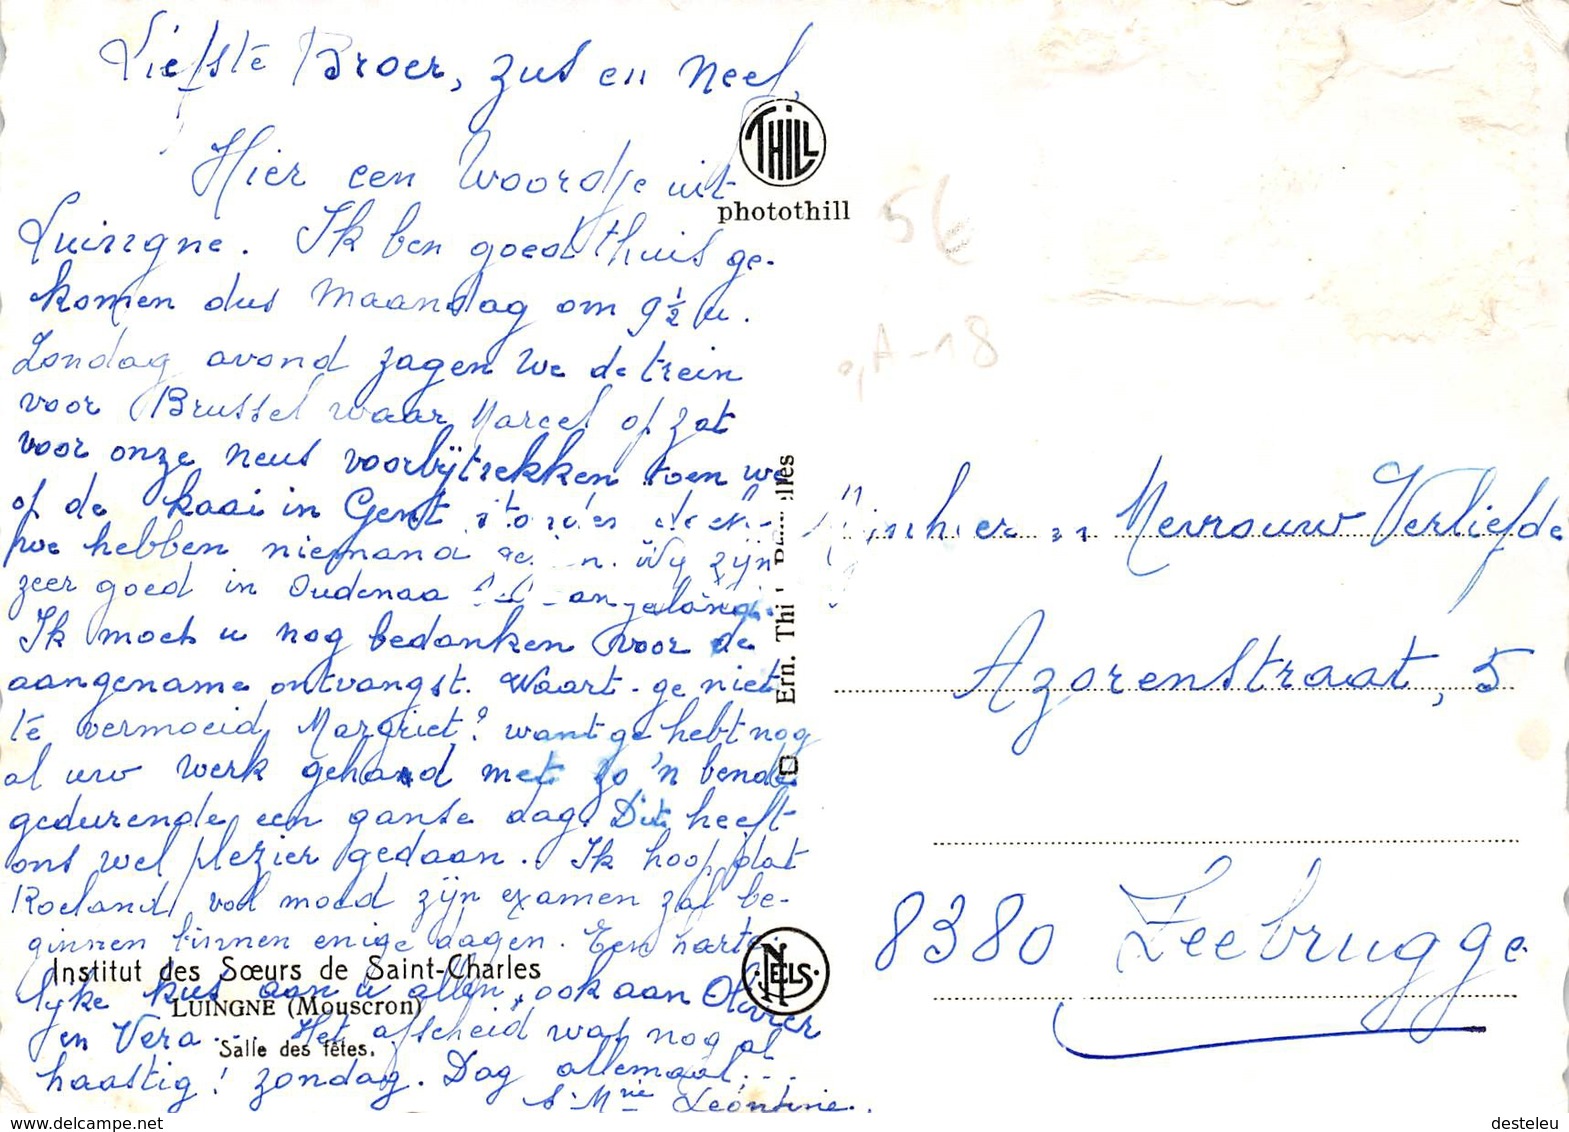 Liefste Broer, zus en neef,
Hier een woordje uit
Luingne. Ik ben goed thuis ge-
komen dus Maandag om 9 1/2 u.
Zondag avond zagen we de trein
voor Brussel waar Marcel op zat
voor onze neus voorbijtrekken toen we
op de kaai in Gent
we hebben niemand Wij zijn
zeer goed in Oudenaa
Ik moet u nog bedanken voor de
aangename ontvangst. Waart-ge niet
te vermoeid Margriet? want ge hebt nog
al uw werk gehad met zo'n bende
gedurende een ganse dag. Dit heeft
ons wel plezier gedaan. Ik hoop dat
Roeland vol moed zijn examen zal be-
ginnen binnen enige dagen. Een harte-
lyke kus aan u allen, ook aan Olivier
en Vera. Het afscheid was nog al
haastig! zondag. Dag allemaal...
S. Mrie Leontine.
THILL
photothill
Ern. Thill
Institut des Sœurs de Saint-Charles
LUINGNE (Mouscron)
Salle des fêtes.
NELS
56
A-18
Mijnheer en Mevrouw Verliefde
Azorenstraat, 5
8380 Zeebrugge
www.delcampe.net
desteleu